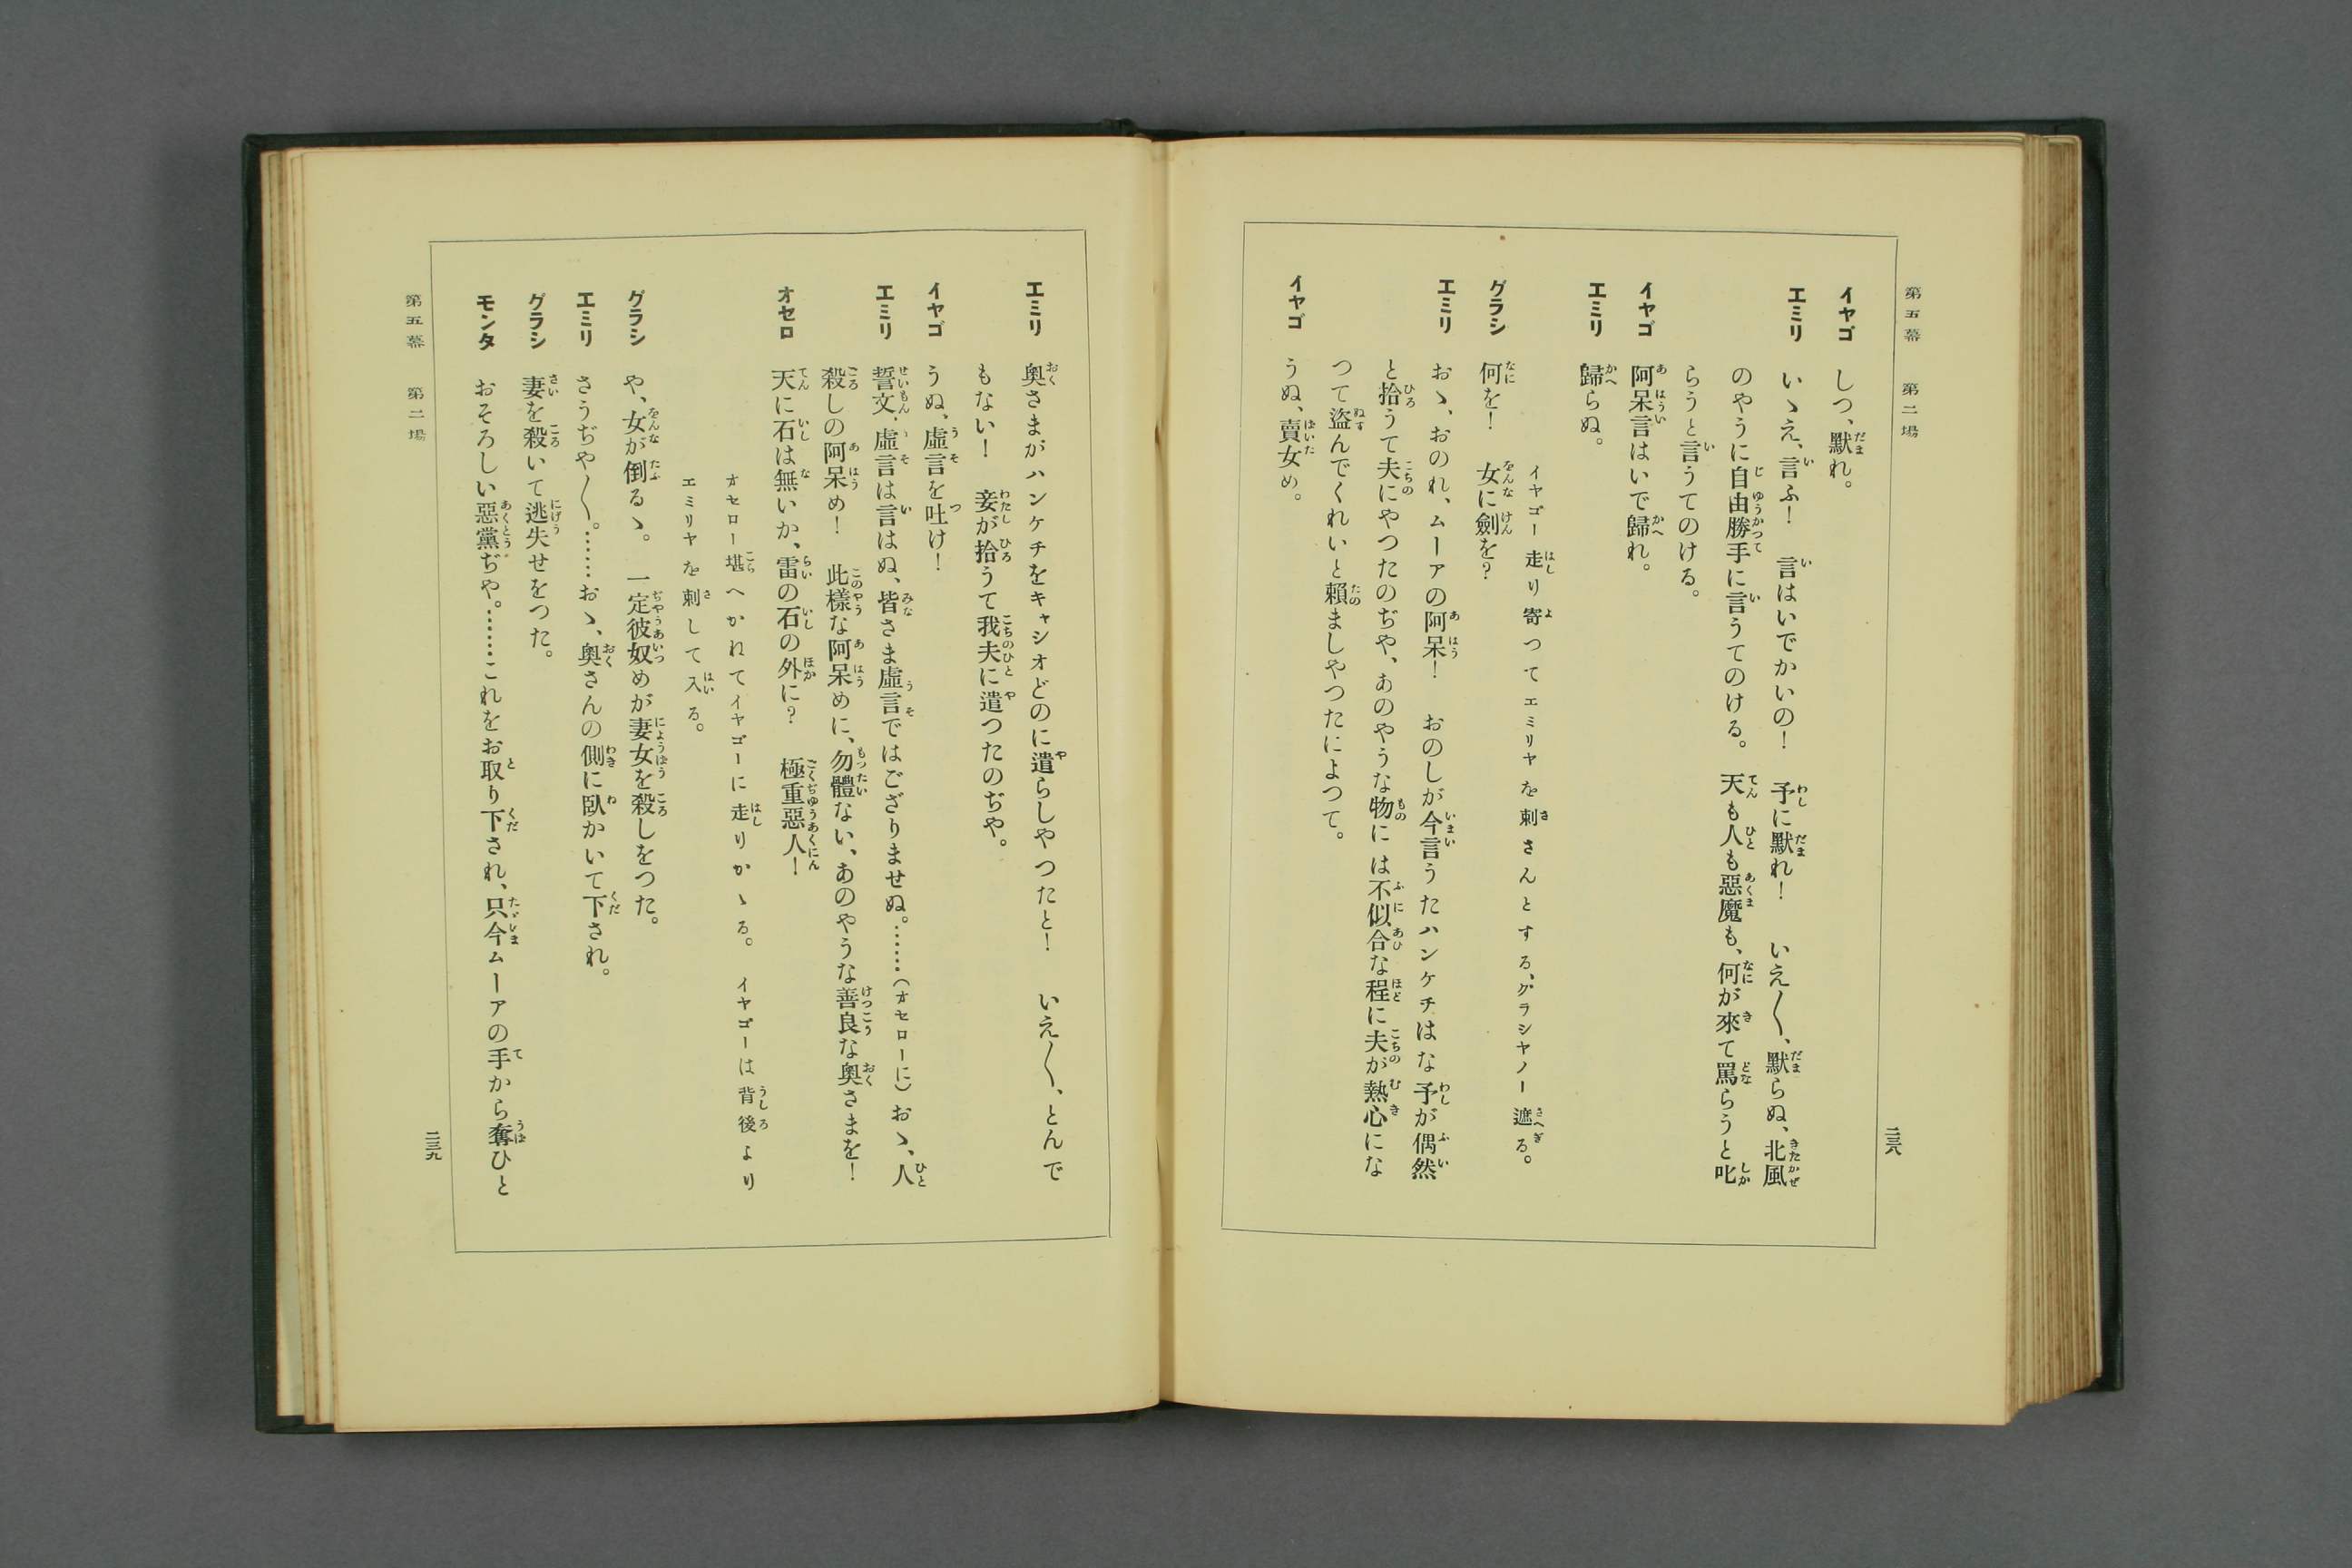 第五幕　第二場
イヤゴ　しつ、默れ。
エミリ　いゝえ、言ふ！　言はいでかいの！　予に默れ！　いえ〳〵、默らぬ、北風
のやうに自由勝手に言うてのける。天も人も惡魔も、何が來て罵らうと叱
らうと言うてのける。
イヤゴ　阿呆言はいで歸れ。
エミリ　歸らぬ。
イヤゴー走り寄つてエミリヤを刺さんとする、グラシヤノー遮る。
グラシ　何を！　女に劍を？
エミリ　おゝ、おのれ、ムーアの阿呆！　おのしが今言うたハンケチはな予が偶然
と拾うて夫にやつたのぢや、あのやうな物には不似合な程に夫が熱心にな
つて盜んでくれいと賴ましやつたによつて。
イヤゴ　うぬ、賣女め。
二三八
エミリ　奧さまがハンケチをキャシオどのに遣らしやつたと！　いえ〳〵、とんで
もない！　妾が拾うて我夫に遣つたのぢや。
イヤゴ　うぬ、虛言を吐け！
エミリ　誓文虛言は言はぬ、皆さま虛言ではござりませぬ。……（オセローに）おゝ、人
殺しの阿呆め！　此樣な阿呆めに、勿體ない、あのやうな善良な奧さまを！
オセロ　天に石は無いか、雷の石の外に？　極重惡人！
オセロー堪へかねてイヤゴーに走りかゝる。イヤゴーは背後より
エミリヤを刺して入る。
グラシ　や、女が倒るゝ。一定彼奴めが妻女を殺しをつた。
エミリ　さうぢや〳〵。……おゝ、奧さんの側に臥かいて下され。
グラシ　妻を殺いて逃失せをつた。
モンタ　おそろしい惡黨ぢや。……これをお取り下され、只今ムーアの手から奪ひと
第五幕　第二場
二三九